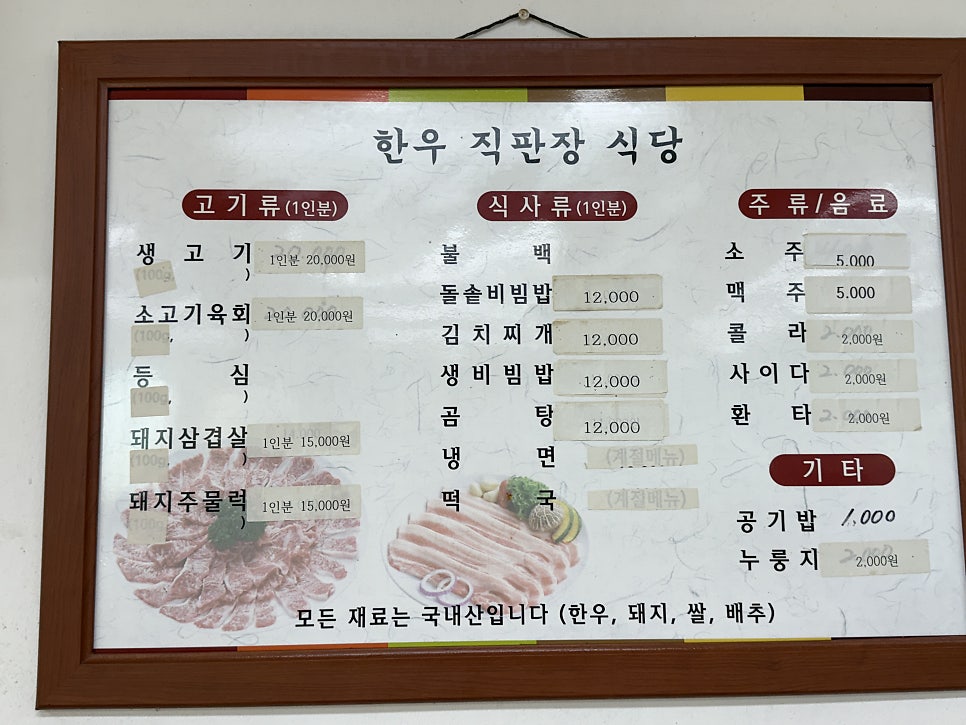 한우 직판장 식당
고기류(1인분)
생고기 1인분 20,000원
(100g, )
소고기육회 1인분 20,000원
(100g, )
등심
(100g, )
돼지삼겹살 1인분 15,000원
(100g, )
돼지주물럭 1인분 15,000원
(100g )
식사류(1인분)
불백
돌솥비빔밥 12,000
김치찌개 12,000
생비빔밥 12,000
곰탕 12,000
냉면 (계절메뉴)
떡국 (계절메뉴)
주류/음료
소주 5.000
맥주 5.000
콜라 2,000원
사이다 2,000원
환타 2,000원
기타
공기밥 1,000
누룽지 2,000원
모든 재료는 국내산입니다 (한우, 돼지, 쌀, 배추)